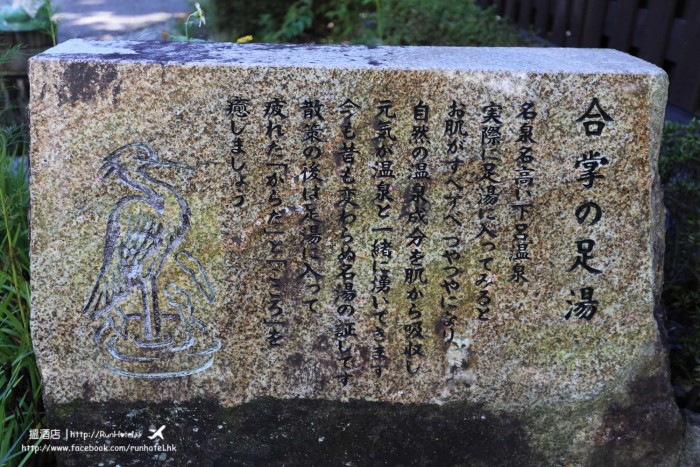 合掌の足湯
名泉名高い下呂温泉
実際に足湯に入ってみると
お肌がすべすべ つやつやになり
自然の温泉成分を肌から吸収し
元気が温泉と一緒に湧いてきます
今も昔も変わらぬ名湯の証しです
散策の後は足湯に入って
疲れた「からだ」と「こころ」を
癒しましょう
搵酒店 | http://RunHotel.hk
http://www.facebook.com/runhotel.hk